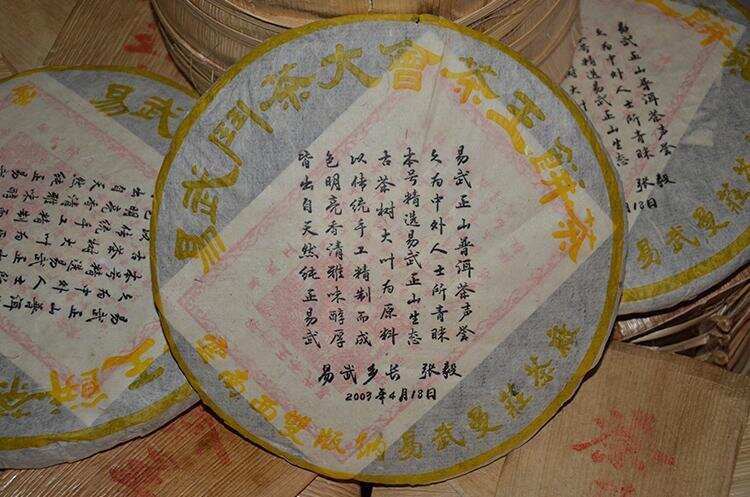 易武鬥茶大會茶王餅茶
易武正山普洱茶声誉
久为中外人士所青睐
本号精选易武正山生态
古茶树大叶为原料
以传统手工精制而成
色明亮香清雅味醇厚
皆出自天然纯正易武
易武乡长 张毅
2003年4月18日
雲南西雙版納易武曼莊茶廠
易武
王餅
易武正山普洱茶声誉
久为中外人士所青睐
号精选易武正山生态
树大叶
张毅
月18日
易武曼莊
茶